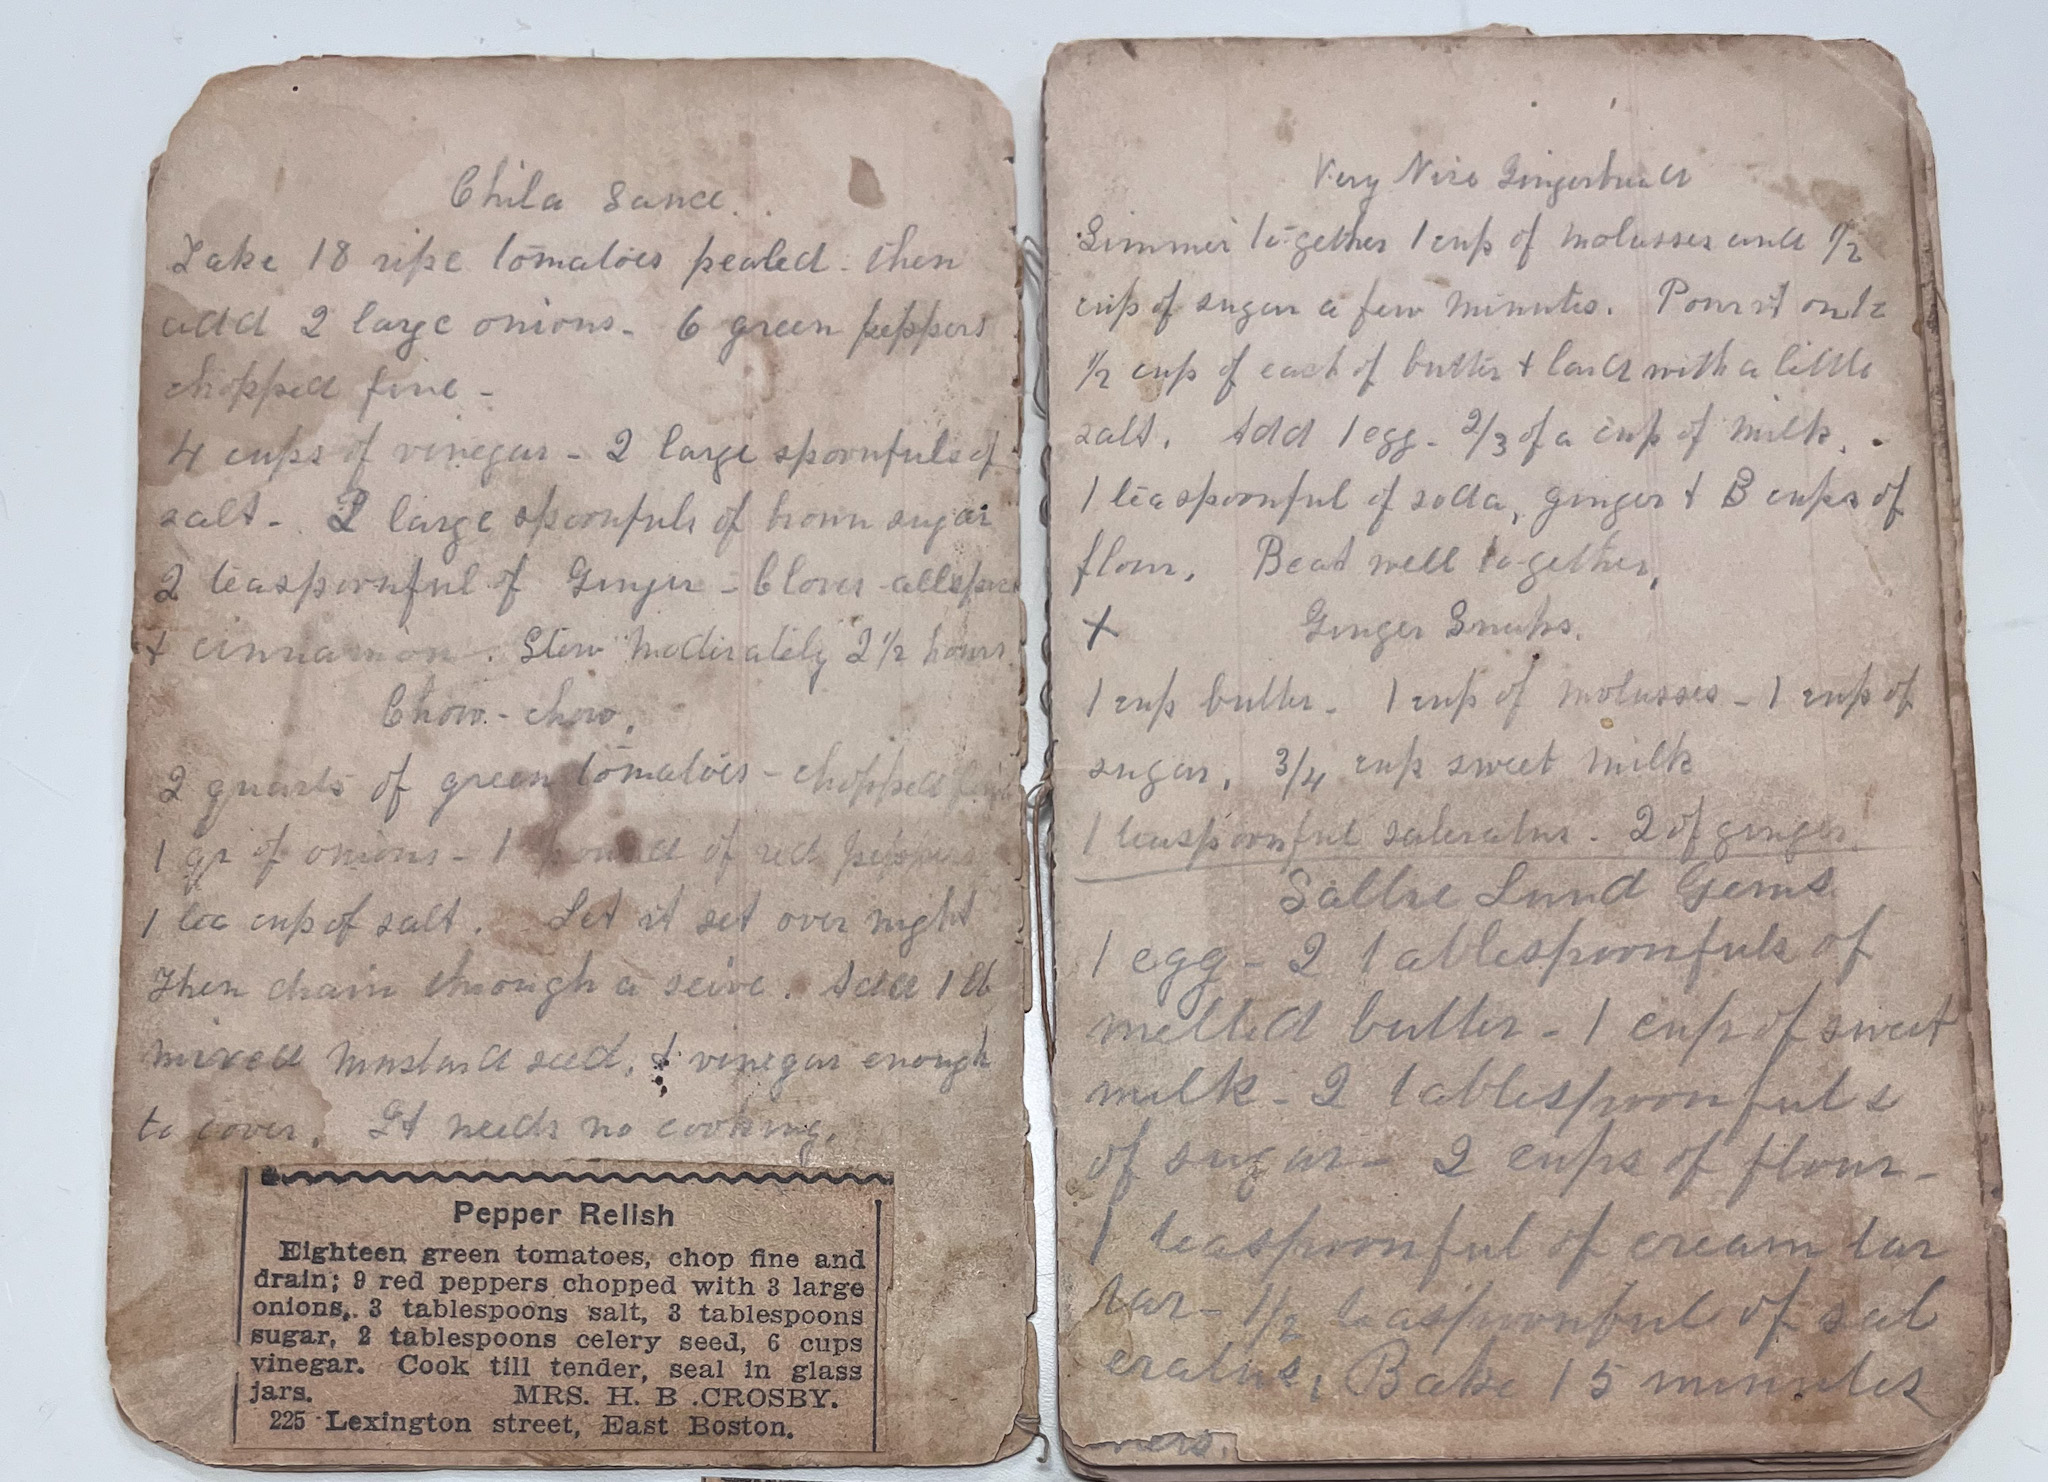 Chila Sauce.
Take 18 ripe tomatoes pealed. then
add 2 large onions - 6 green peppers
chopped fine -
4 cups of vinegar - 2 large spoonfuls of
salt - 2 large spoonfuls of brown sugar
2 teaspoonful of Ginger - Cloves - allspice
+ cinnamon. Stew moderately 2 1/2 hours.
Chow-chow.
2 quarts of green tomatoes - chopped fine
1 qr of onions - 1 pound of red peppers
1 tea cup of salt. Let it set over night
Then drain through a seive. Add 1 lb
mixed mustard seed, + vinegar enough
to cover. It needs no cooking.
Pepper Relish
Eighteen green tomatoes, chop fine and
drain; 9 red peppers chopped with 3 large
onions, 3 tablespoons salt, 3 tablespoons
sugar, 2 tablespoons celery seed, 6 cups
vinegar. Cook till tender, seal in glass
jars. MRS. H. B .CROSBY.
225 Lexington street, East Boston.
Very Nice Gingerbread
Simmer together 1 cup of molasses and 1/2
cup of sugar a few minutes. Pour it onto
1/2 cup of each of butter + lard with a little
salt. Add 1 egg - 2/3 of a cup of milk.
1 teaspoonful of soda, ginger + 3 cups of
flour. Beat well together.
+ Ginger Snaps.
1 cup butter - 1 cup of molasses - 1 cup of
sugar, 3/4 cup sweet milk
1 teaspoonful saleratus - 2 of ginger
Sallie Lund Gems
1 egg - 2 tablespoonfuls of
melted butter - 1 cup of sweet
milk - 2 tablespoonfuls
of sugar - 2 cups of flour -
1 teaspoonful of cream tar
tar - 1/2 teaspoonful of sal
eratus, Bake 15 minutes